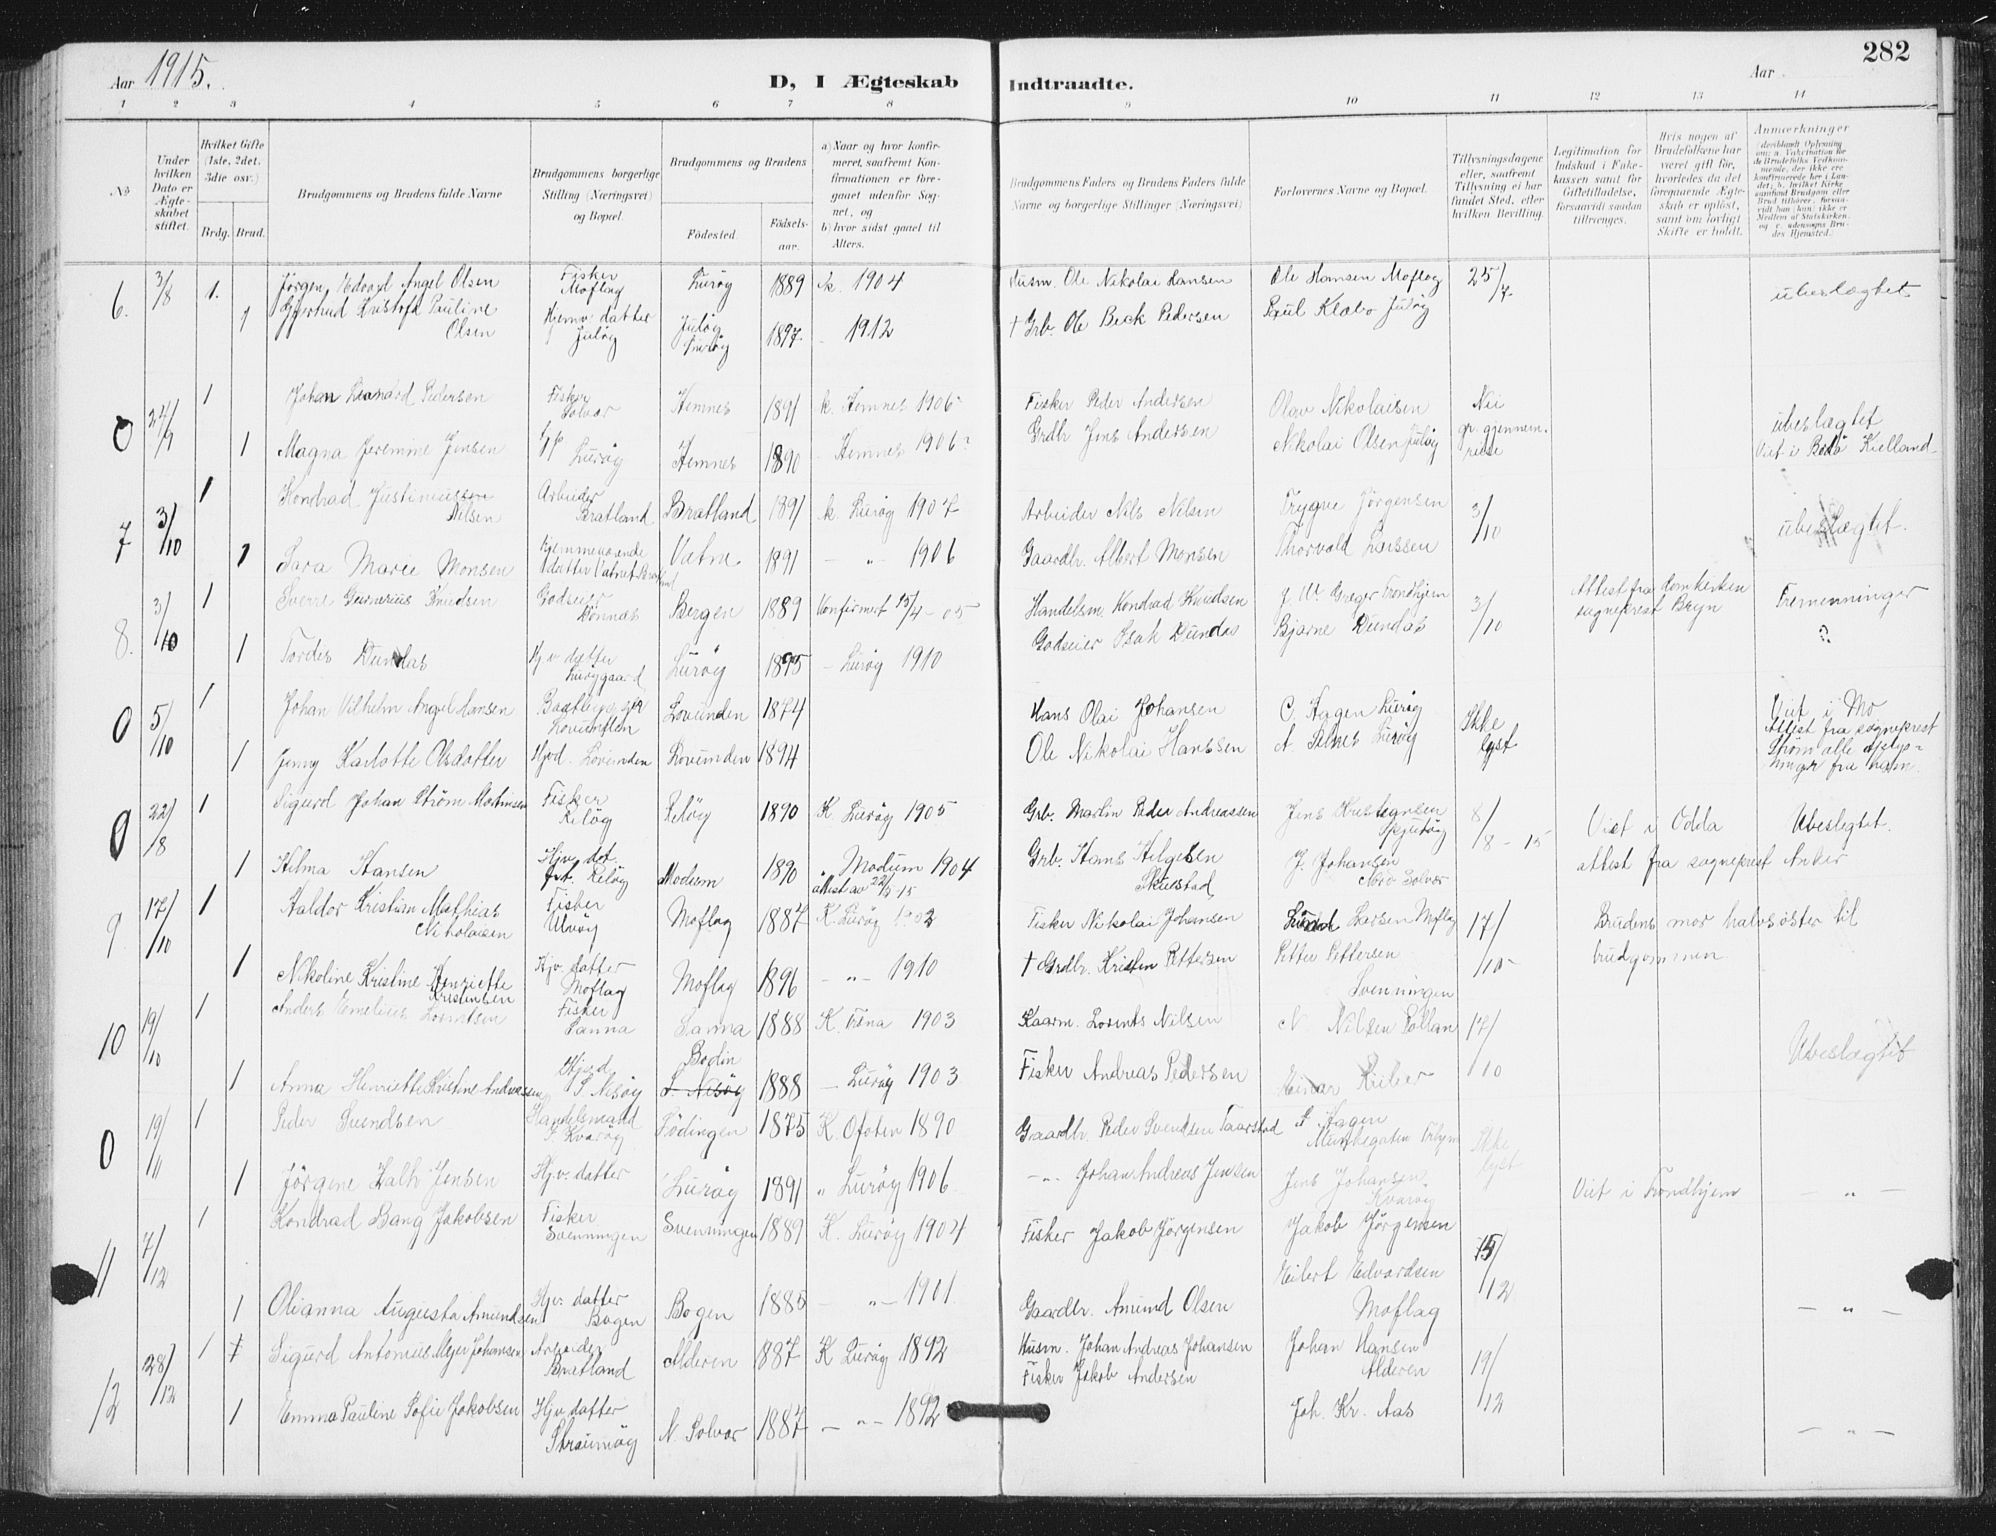 282
Aar 1915.
D, I Ægteskab Indtraadte.
Aar
1 2 3 4 5 6 7 8 9 10 11 12 13 14
No
Under hvilken Dato er Ægteskabet stiftet.
Hvilket Gifte (1ste, 2det, 3die osv.)
Brdg. Brud.
Brudgommens og Brudens fulde Navne
Brudgommens borgerlige Stilling (Næringsvei) og Bopæl.
Brudgommens og Brudens
Fødested.
Fødselsaar.
a) Naar og hvor konfirmeret, saafremt Konfirmationen er foregaaet udenfor Sognet, og
b) hvor sidst gaaet til Alters.
Brudgommens Faders og Brudens Faders fulde Navne og borgerlige Stillinger (Næringsvei)
Forlovernes Navne og Bopæl.
Tillysningsdagene eller, saafremt Tillysning ei har fundet Sted, efter hvilken Bevilling.
Legitimation for Indskud i Enkekassen samt for Giftetilladelse, forsaavidt saadan tiltrænges.
Hvis nogen af Brudefolkene har været gift før, hvorledes da det foregaaende Ægteskab er opløst, samt om lovligt Skifte er holdt.
Anmærkninger
6. 3/8 1. Jørgen Edvard Angel Olsen Fisker Moflag Lurøy 1889 k. 1904 Husm. Ole Nikolai Hansen Ole Hansen Moflag 25/7. ubeslægtet
1 Gjertrud Kristofa Pauline Olsen Hjemv. datter Juløy Juløy Lurøy 1897. 1912 † Grb. Ole Beck Pedersen Paul Klæbo Juløy
0 24/9 1 Johan Leonard Pedersen Fisker Solvær Hemnes 1891 k. Hemnes 1906 Fisker Peder Andersen Olav Nikolaisen Nei gr. gjennemreise ubeslægtet
1 Magna Jeremine Jensen Lurøy Hemnes 1890 - Hemnes 1906 Grdbr Jens Andersen Nikolai Olsen Juløy Viet i Bodø Kielland
7 3/10 1 Kondrad Justinussen Nilsen Arbeider Bratland Bratland 1891 k. Lurøy 1907 Arbeider Nils Nilsen Trygve Jørgensen 3/10 ubeslægtet.
1 Sara Marie Monsen Hjemmeværende datter Vatnet Vatne 1891 - " - 1906 Gaardbr. Albert Monsen Thorvald Larssen
8. 3/10 1 Sverre Gunnerius Knudsen Godseier Dønnæs Bergen 1889 Konfirmert 15/4 - 05 Handelsm. Kondrad Knudsen Greger Trondhjem 3/10 Attest fra domkirken sogneprest Bryn Tremenninger ?
1 Tordis Dundas Hjv. datter Lurøygaard Lurøy 1895 - Lurøy 1910 Godseier Isak Dundas Bjarne Dundas
0 5/10 1 Johan Vilhelm Angel Hansen Lovunden Lovunden 1874 Hans Olai Johansen C. Hagen Lurøy Ikke lyst Viet i Mo Attest fra sogneprest Strøm alle oplysninger fra ham.
1 Jenny Karlotte Olsdatter Hjvd. Lovunden Lovunden 1894 Ole Nikolai Hanssen A. Selnes Lurøy
0 22/8 1 Sigurd Johan Strøm Martinsen Fisker Reløy Reløy 1890 K. Lurøy 1905 Grb. Martin Peder Andreassen Jens Kristiansen 8/8 - 15 Viet i Odda Ubeslegtet.
1 Hilma Hansen Hjv. dat. Reløy Modum 1890 " Modum 1904 attest av 22/5-15 Grb. Hans Helgesen Skurstad J. Johansen Nordsolvær attest fra sogneprest Anker
9. 17/10 1 Haldor Kristian Mathias Nikolaisen Fisker Ulvøy Moflag 1887 K. Lurøy 1902 Fisker Nikolai Johansen Larsen Moflag 17/10 Brudens mor halvsøster til brudgommen
1 Nikoline Kristine Henriette Kristensen Hjv. datter Moflag Moflag 1896 - " - 1910 † Grdbr. Kristen Pettersen Petter Pettersen Svenningen
10 19/10 1 Anders Emelius Lorentsen Fisker Sanna Sanna 1888 K. Træna 1903 Kaarm. Lorents Nilsen N Nilsen Sollan 17/10 Ubeslægtet
1 Anna Henriette Kristine Andreassen Hjvd S. Nesøy Bodin S. Nesøy 1888 - Lurøy 1903 Fisker Andreas Pedersen Einar
0 19/11 1 Peder Svendsen Handelsmand S. Kvarøy Lødingen 1875 K. Ofoten 1890 Gaardbr. Peder Svendsen Taarstad Hagen Munkegaten Trhjm Ikke lyst
1 Jørgine Jensen Hjv. datter Lurøy 1891 " Lurøy 1906 - " - Johan Andreas Jensen Jens Johansen Kvarøy Viet i Trondhjem - " -
11 7/12 1 Kondrad Bang Jakobsen Fisker Svenningen Svenningen 1889 K. Lurøy 1904 Fisker Jakob Jørgensen Jakob Jørgensen 15/12
1 Olianna Augusta Amundsen Hjv. datter Bogen Bogen 1885 - " - 1901 Gaardbr. Amund Olsen Eilert Edvardsen Moflag - " -
12 28/12 1 Sigurd Antonius Meyer Johansen Arbeider Bratland Alderen 1887 K Lurøy 1892 Husm. Johan Andreas Johansen Johan Hansen Alderen 19/12
1 Emma Pauline Sofie Jakobsen Hjv. datter Straumøy N. Solvær 1887 - " - 1892 Fisker Jakob Andersen Joh. Kr. Aas - " -